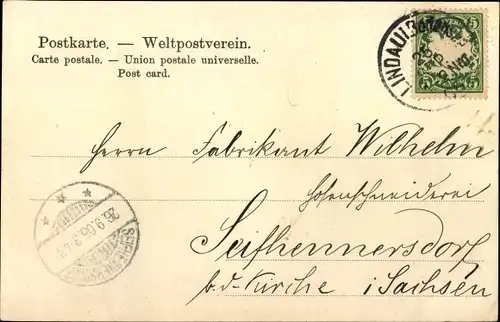 Postkarte. — Weltpostverein.
Carte postale. — Union postale universelle.
Post card.
LINDAU
5 5
Herrn Fabrikant Wilhelm
Hosenschneiderei
Seifhennersdorf
b. d. Kirche i/Sachsen
26.9.05.3-4N